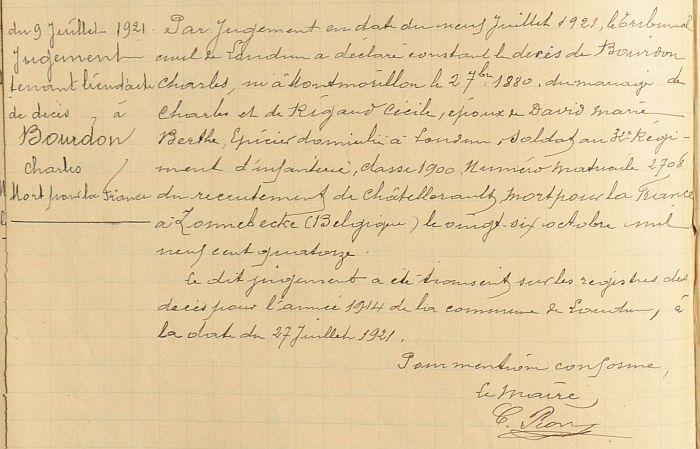 du 9 Juillet 1921
Jugement
tenant lieu d'acte
de décès à
Bourdon
Charles
Mort pour la France
Par Jugement en dat du neuf Juillet 1921, le tribunal
civil de Loudun a déclaré constant le décès de Bourdon
Charles, né à Montmorillon le 2 7bre 1880, du mariage de
Charles et de Rigaud Cécile, époux de David Marie
Berthe, Epicier domicilié à Loudun, soldat au 32e Régi
ment d'infanterie, classe 1900, Numéro matricule 2708
du recrutement de Châtellerault, mort pour la France
à Zonnebecke (Belgique) le vingt six octobre mil
neuf cent quatorze.
Le dit jugement a été transcrit sur les registres des
décès pour l'année 1914 de la commune de Loudun, à
la date du 27 Juillet 1921.
Pour mention conforme,
Le Maire,